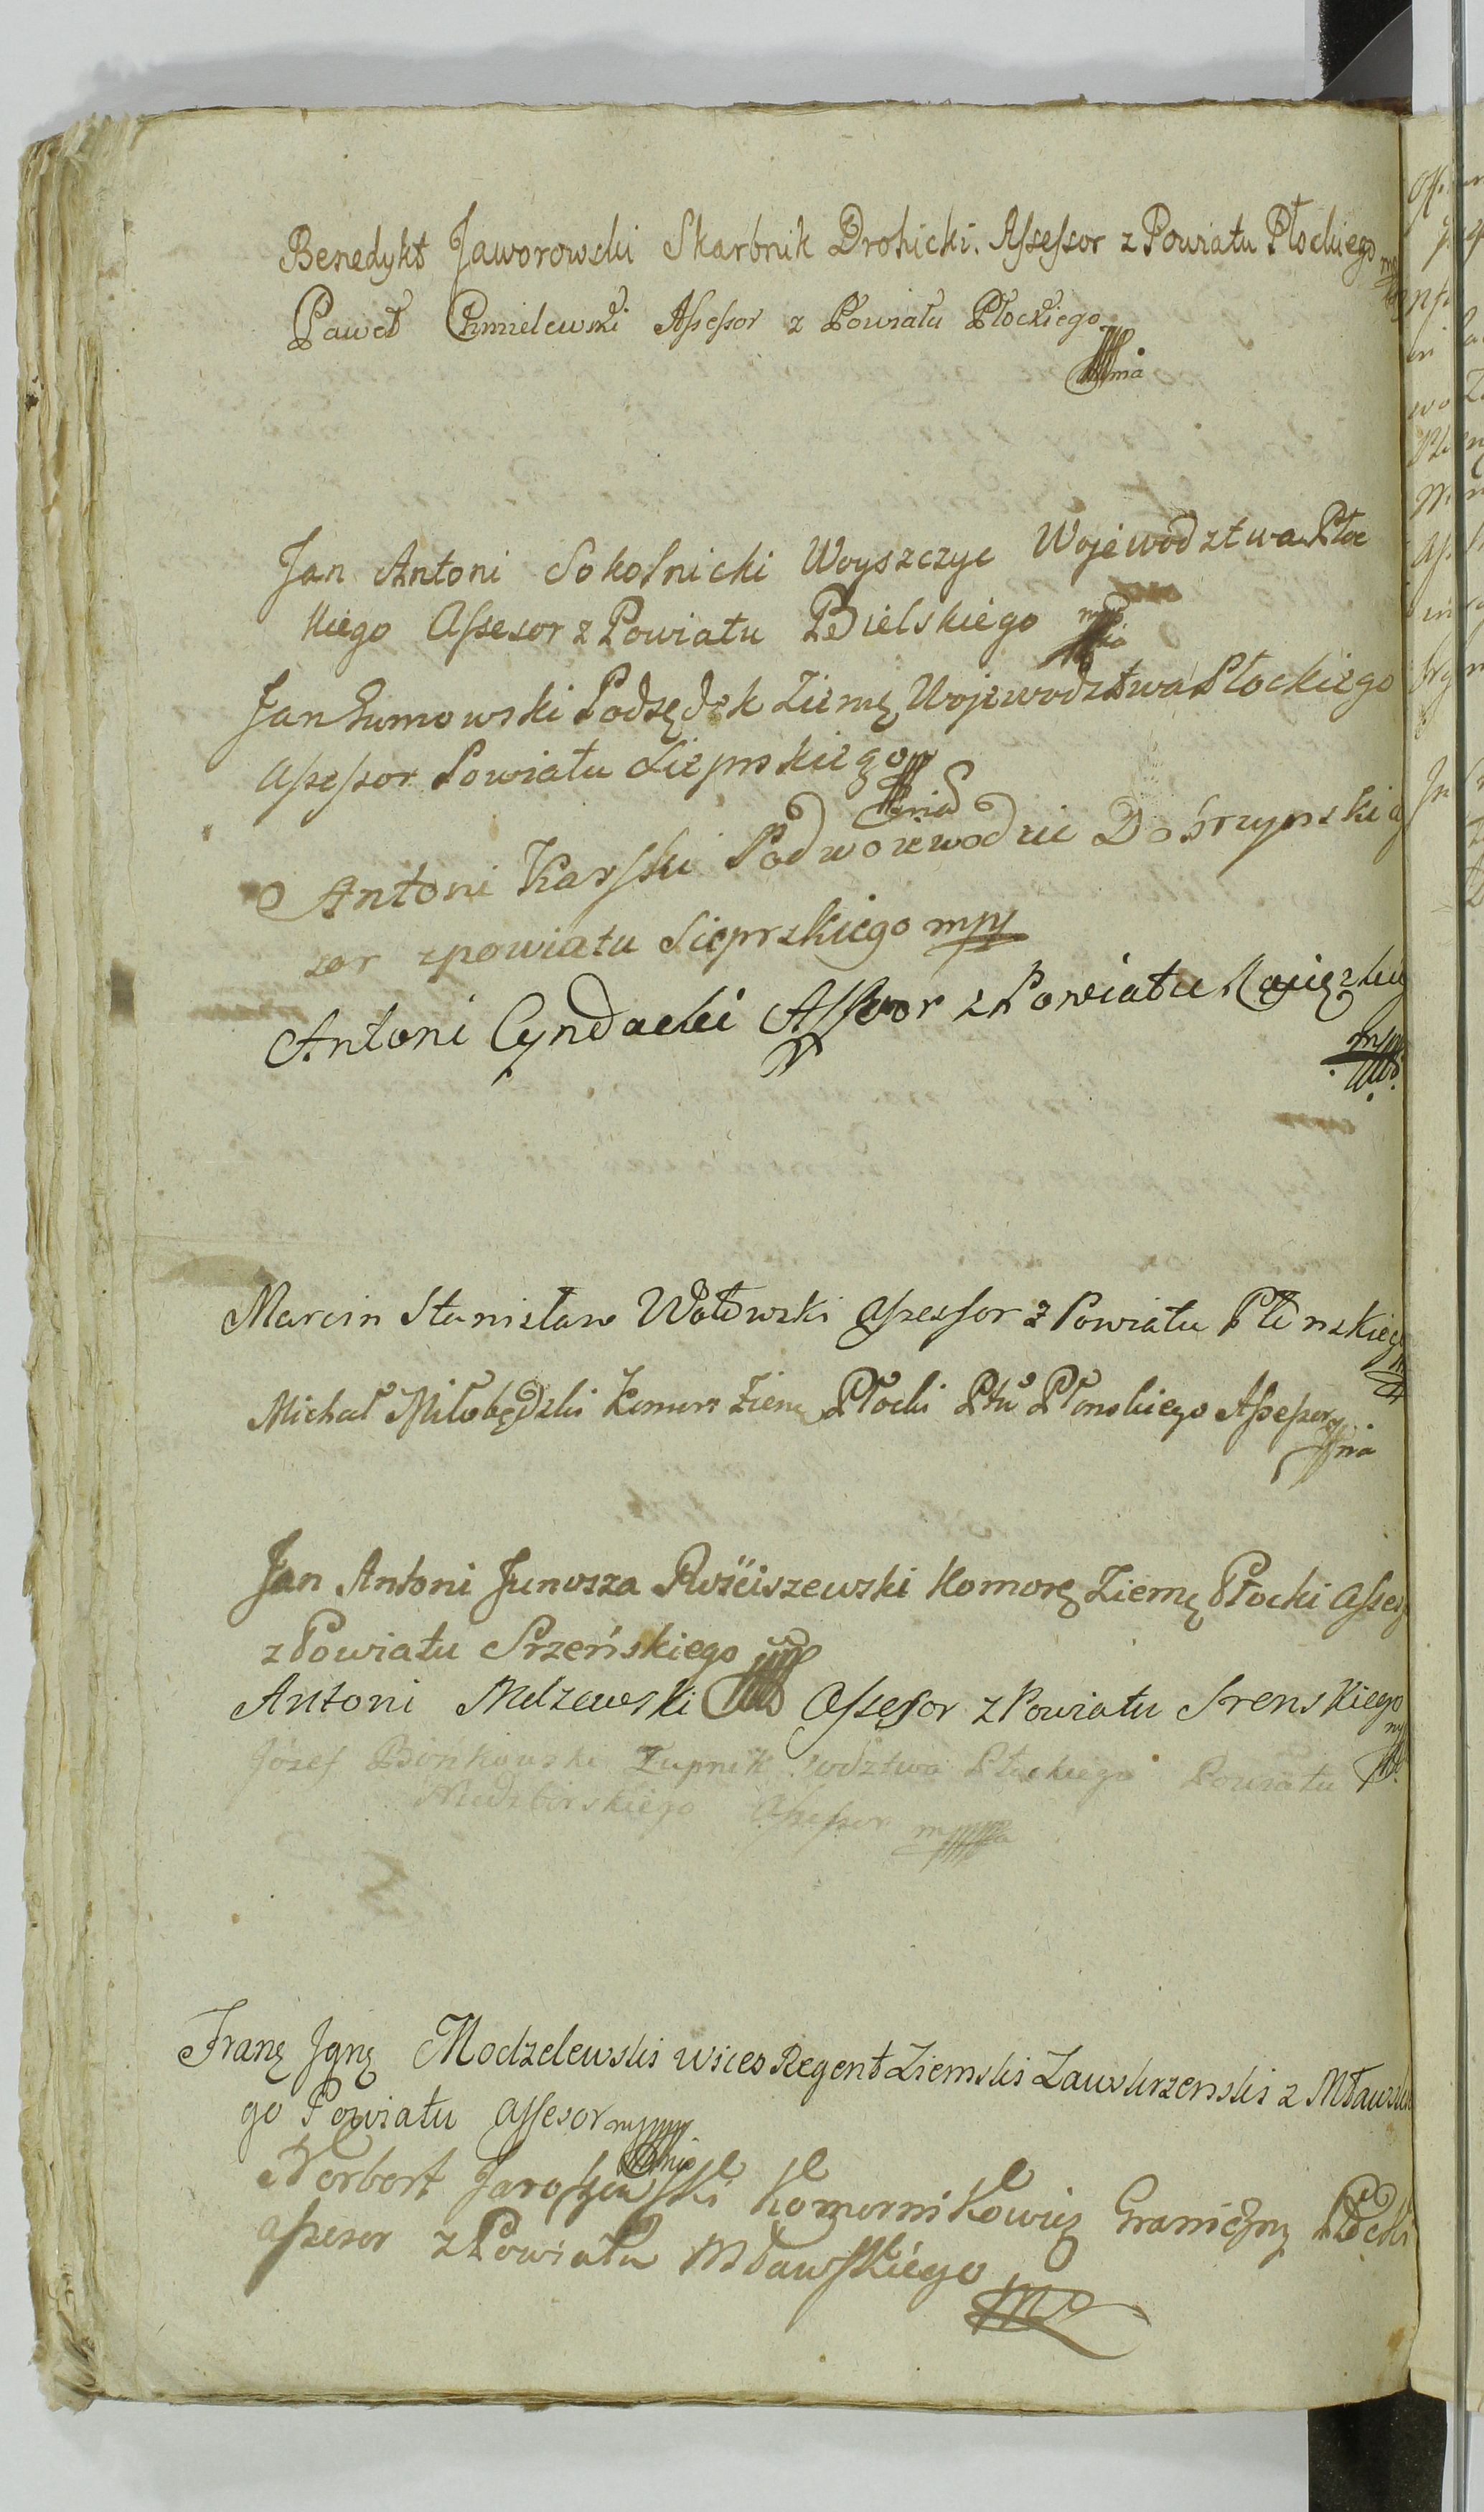 Benedykt Jaworowski Skarbnik Drohicki. Assessor z Powiatu Płockiego
Paweł Chmielewski Assessor z Powiatu Płockiego
mpa
Jan Antoni Sokolnicki Woyszczyc Wojewodztwa Płoc
kiego Assesor z Powiatu Bielskiego mpia
Jan Sumowski Podsędek Ziemę Wojewodztwa Płockiego
assessor Powiatu Sierpskiego
Antoni Karski Podwojewodzic Dobrzynski a
sor z powiatu Sierprskiego mpp
Antoni Cyndacki Assesor z Powiatu
Marcin Stanisław Wołowski assessor z Powiatu Płonskieg
Michał Miłobędzki Komorn Ziem Płocki Ptu Płonskiego Assessor
mpia
Jan Antoni Junosza Rościszewski Komorę Ziemę Płocki Asses
z Powiatu Srzeńskiego
Antoni Mdzewski assessor z Powiatu Srenskiego
Józef Bońkowski Żupnik wodztwa Płockiego Powiatu
Niedzborskiego assessor mppa
Franę Jgnę Modzelewski wice Regent Ziemski Zawskrzenski z Mławski
go Powiatu assesor mppp
Norbert Jaroszewski Komornikowicz Graniczny Płocki
assesor z Powiatu Mławskiego
mp